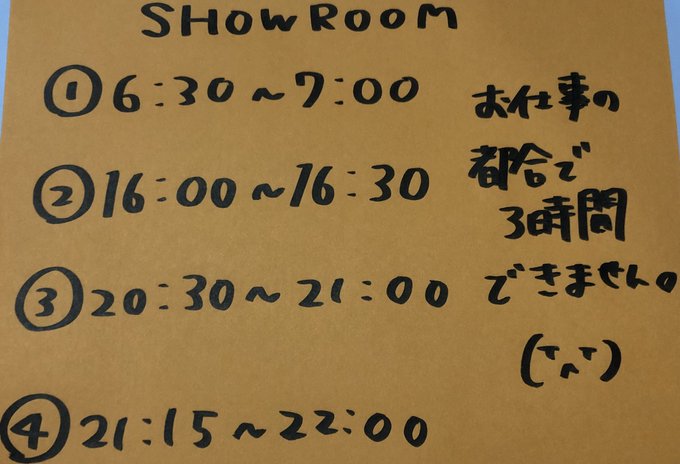 SHOWROOM
①6:30~7:00
②16:00~16:30
③20:30~21:00
④21:15~22:00
お仕事の
都合で
3時間
できません。
(T^T)